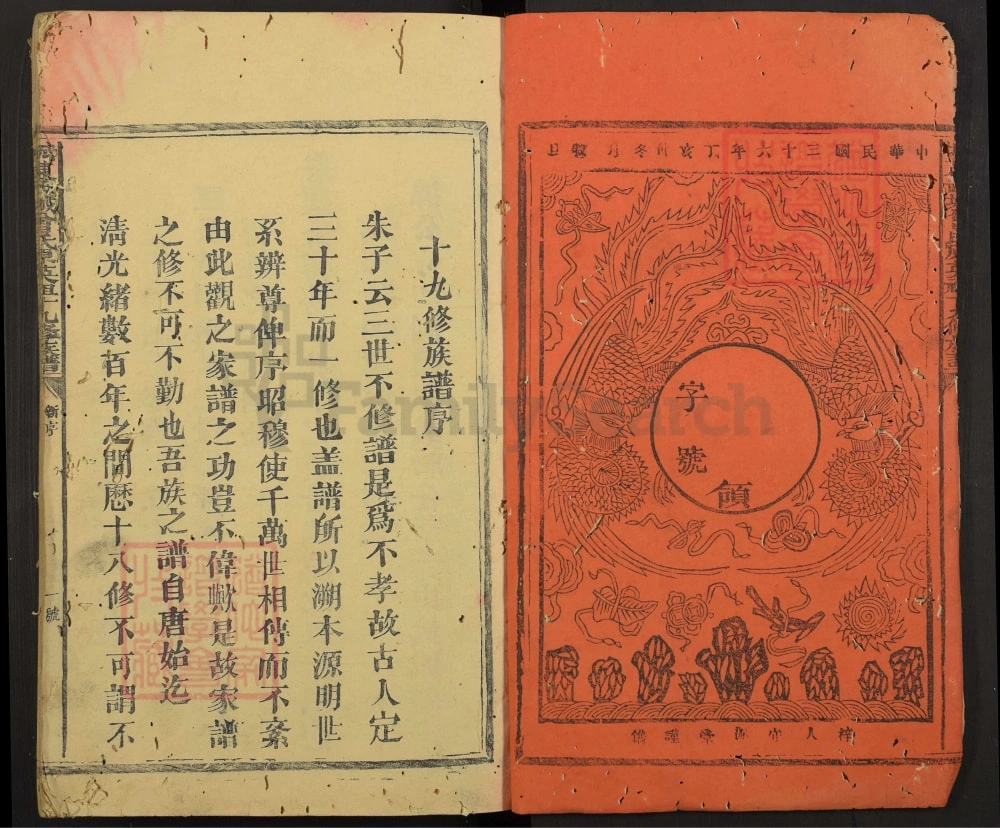 中華民國三十六年丁亥
字號
領
十九修族譜序
朱子云三世不修譜是爲不孝故古人定
三十年而一修也盖譜所以溯本源明世
系辨尊俾序昭穆使千萬世相傳而不紊
由此觀之家譜之功豈不偉歟是故家譜
之修不可不勤也吾族之譜自唐始迄
清光緒數百年之間歷十八修不可謂不
新序
一號
FamilySearch